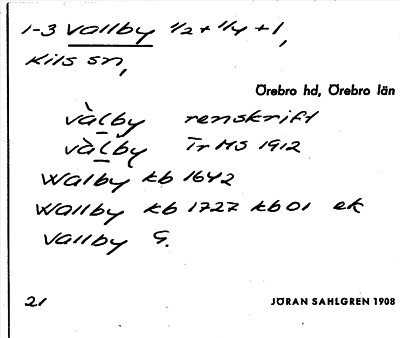 1-3 Vallby 1/2 + 1/4 + 1,
Kils sn,
Örebro hd, Örebro län
vàlby renskrift
vàlby TrHS 1912
Walby kb 1642
Wallby kb 1727 kb 01 ek
Vallby G.
21 JÖRAN SAHLGREN 1908